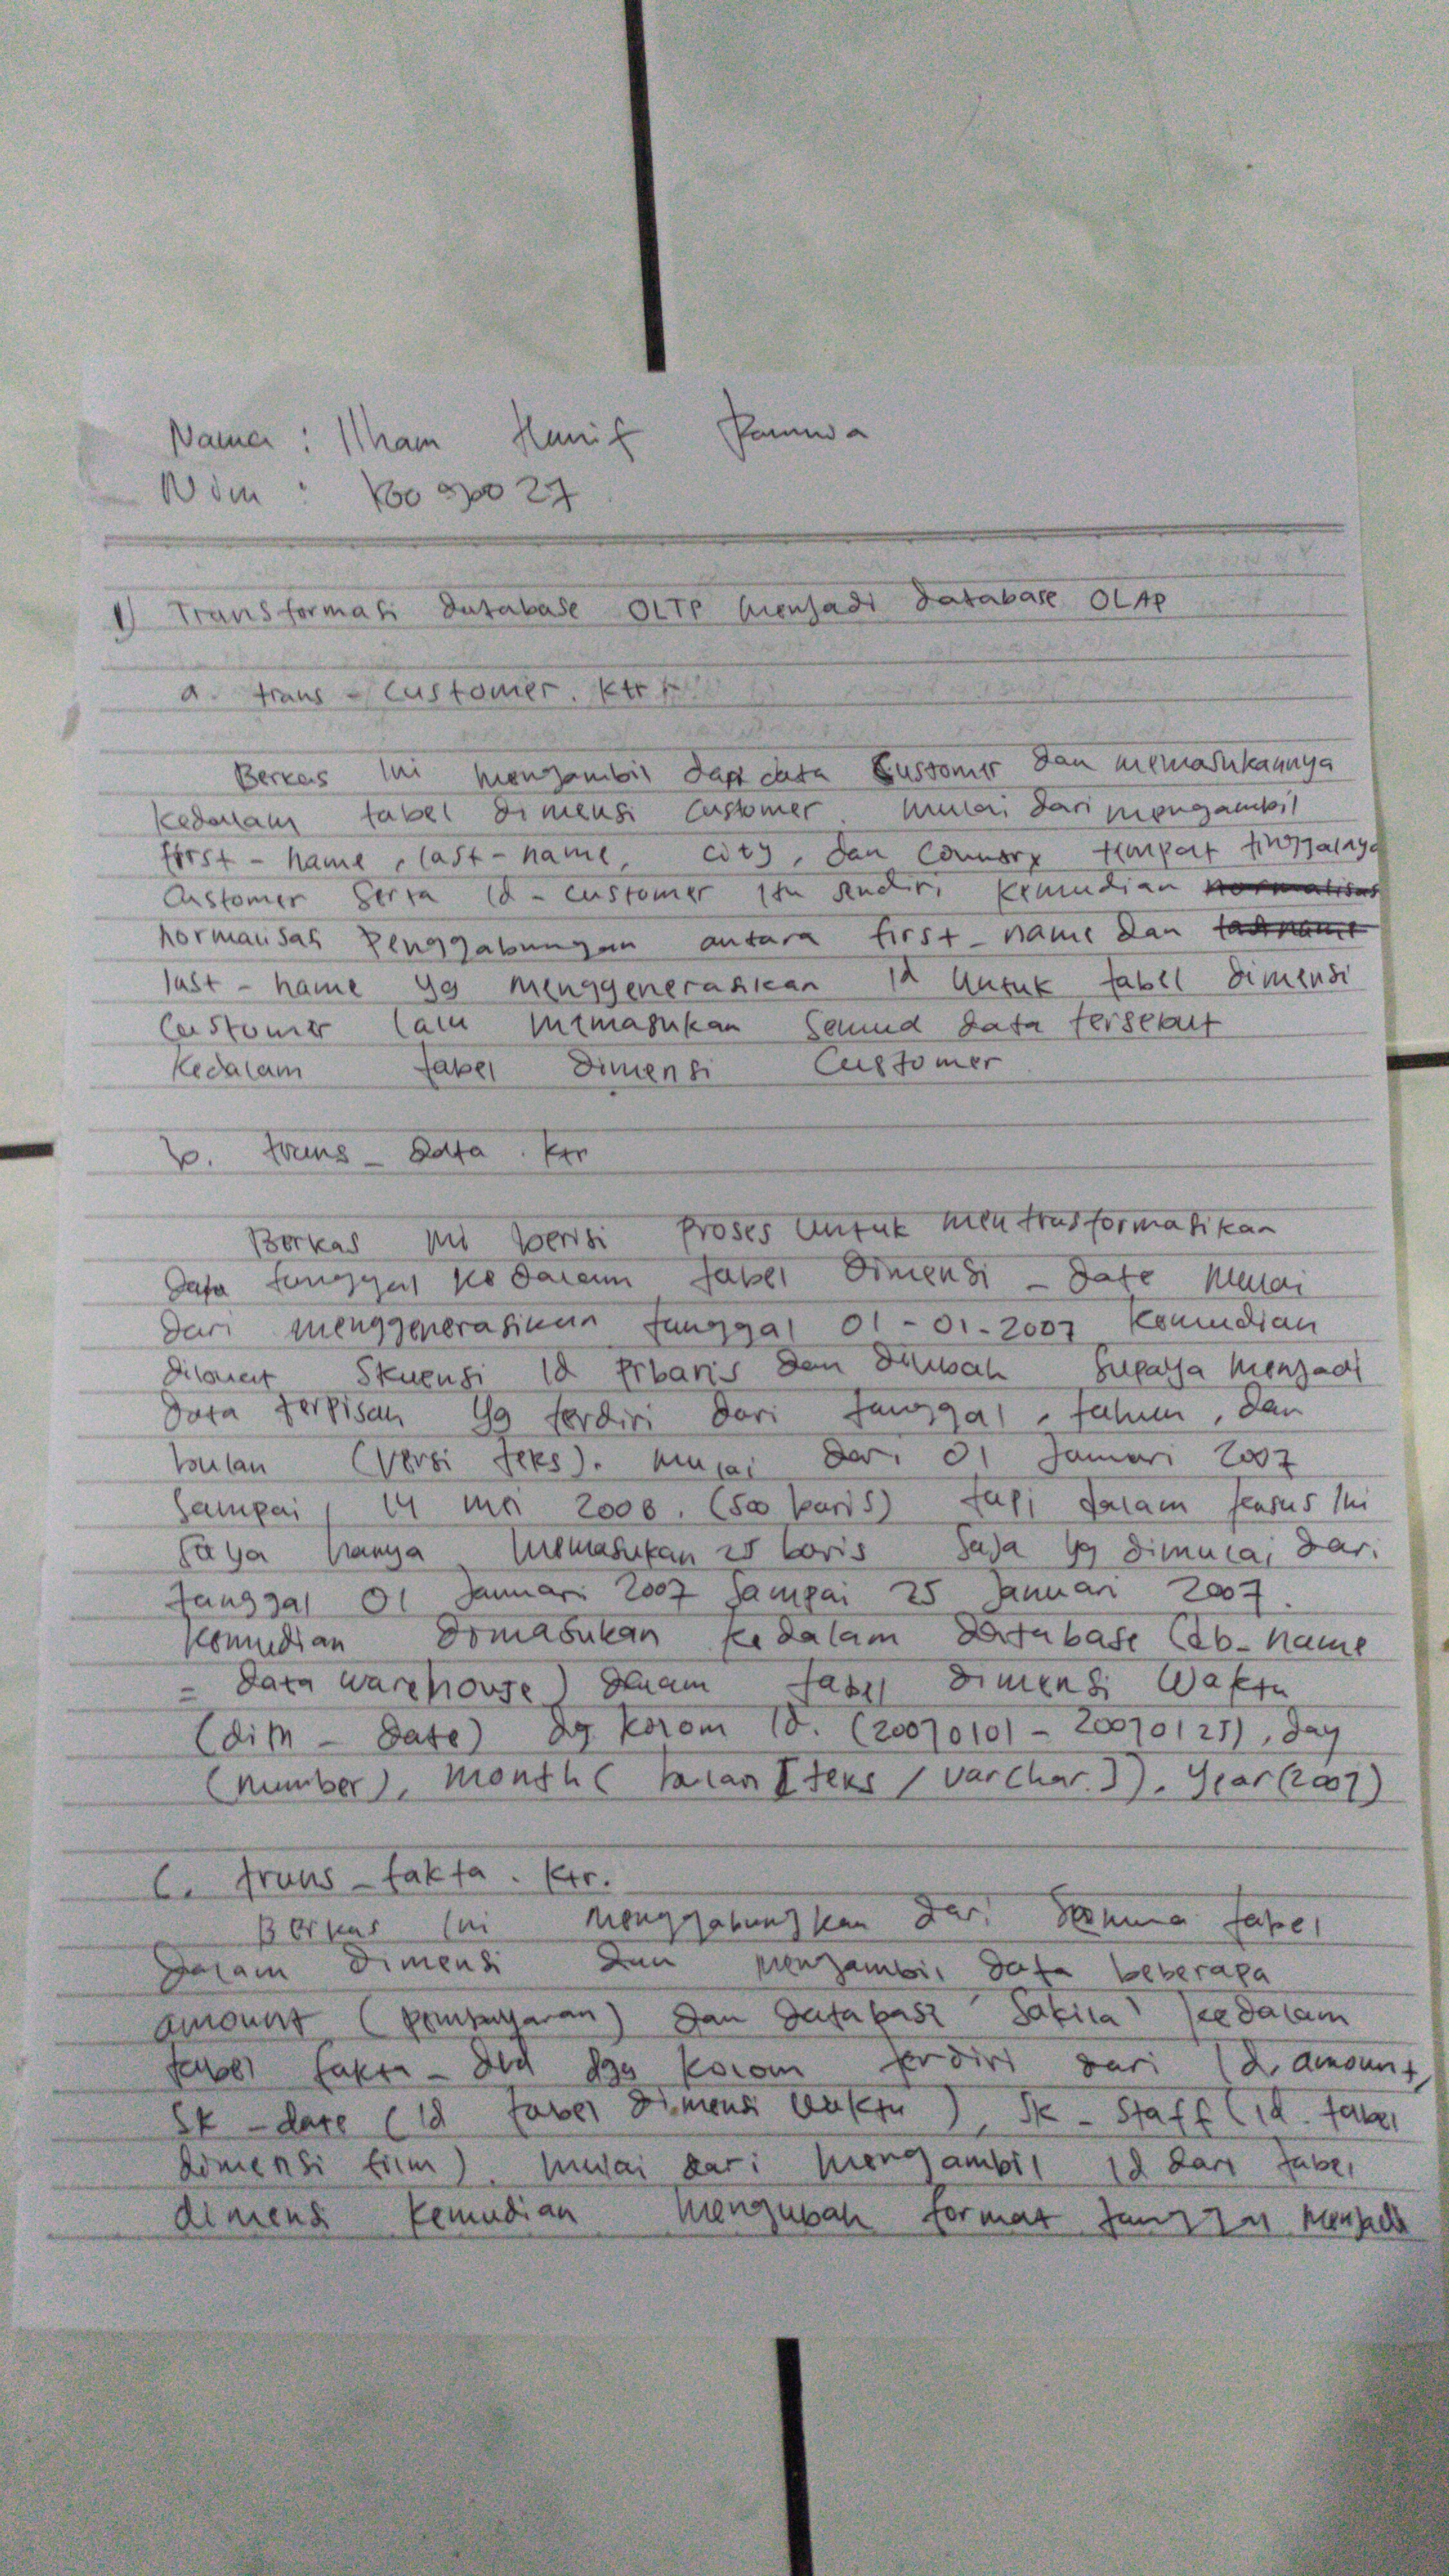 Nama : Ilham Hanif
Nim :
1) Transformasi database OLTP menjadi database OLAP
a. trans - customer. ktr
Berkas ini mengambil dari data Customer dan memasukannya
kedalam tabel dimensi customer. mulai dari mengambil
first - name, last - name, city, dan country tempat tinggalnya
customer serta id - customer itu sendiri kemudian
normalisasi penggabungan antara first - name dan
last - name yg menggenerasikan id untuk tabel dimensi
customer lalu memasukan semua data tersebut
kedalam tabel dimensi Customer
b. trans - data . ktr
Berkas ini berisi proses untuk mentrasformasikan
data tanggal kedalam tabel dimensi - date mulai
dari menggenerasikan tanggal 01 - 01 - 2007 kemudian
dibuat skuensi id prbaris dan diubah supaya menjadi
data terpisah yg terdiri dari tanggal, tahun, dan
bulan (versi teks). mulai dari 01 Januari 2007
sampai 14 mei 2008. (500 baris) tapi dalam ini
saya hanya memasukan 25 baris saja yg dimulai dari
tanggal 01 Januari 2007 sampai 25 Januari 2007.
kemudian dimasukan kedalam database (db - name
= data warehouse) dalam tabel dimensi waktu
(dim - date) dg kolom id. (20070101 - 20070125), day
(number), month ( bulan [teks / varchar.]). year (2007)
c. trans - fakta . ktr.
Berkas ini menggabungkan dari semua tabel
dalam dimensi dan mengambil data beberapa
amount (pembayaran) dan database 'sakila' kedalam
tabel fakta - kolom terdiri dari id, amount,
sk - date (id tabel dimensi waktu), sk - staff (id. tabel
dimensi film). mulai dari mengambil id dari tabel
dimensi kemudian mengubah format tanggal menjadi